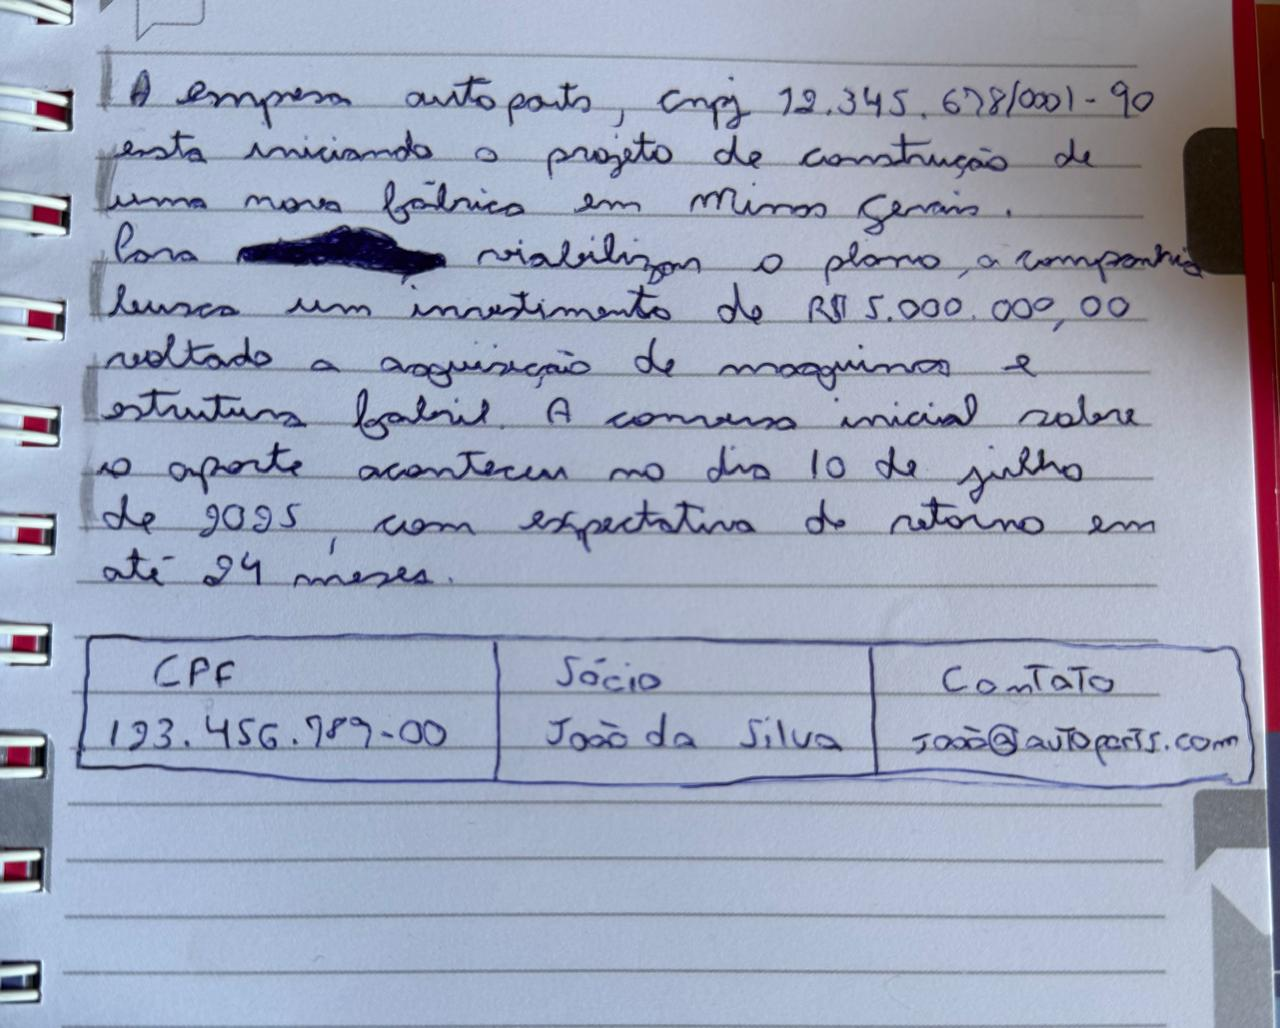 A empresa autoparts, cnpj 12.345.678/0001-90
esta iniciando o projeto de construção de
uma nova fábrica em Minas Gerais.
Para viabilizar o plano, a companhia
busca um investimento de R$ 5.000.000,00
voltado a aquisição de maquinas e
estrutura fabril. A conversa inicial sobre
o aporte aconteceu no dia 10 de julho
de 2025, com expectativa de retorno em
até 24 meses.
CPF Sócio Contato
123.456.789-00 João da Silva joão@autoparts.com